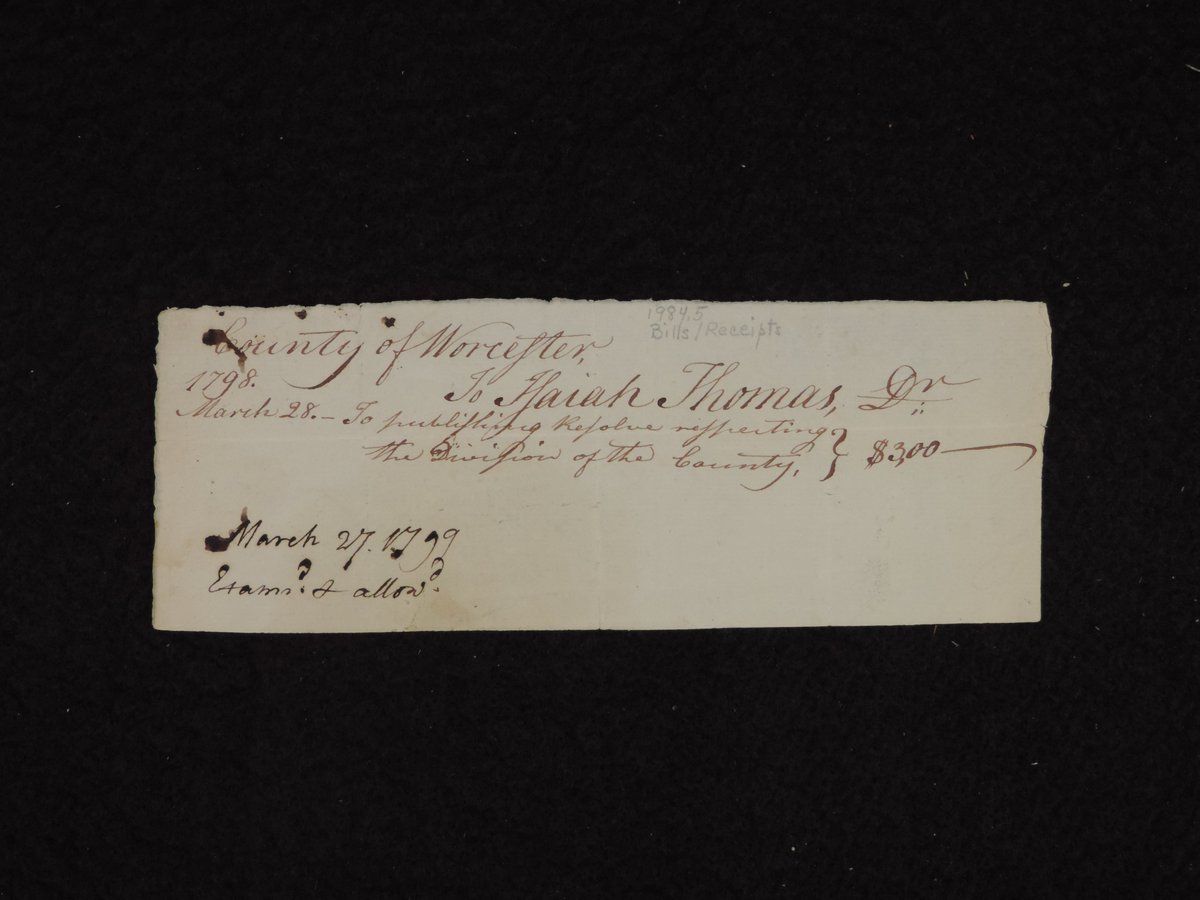 1984.5
Bills/Receipts
County of Worcester,
1798. To Isaiah Thomas, Dr
March 28.— To publishing Resolve respecting
the Division of the County, } $3,00
March 27. 1799
Examd. & allowd.